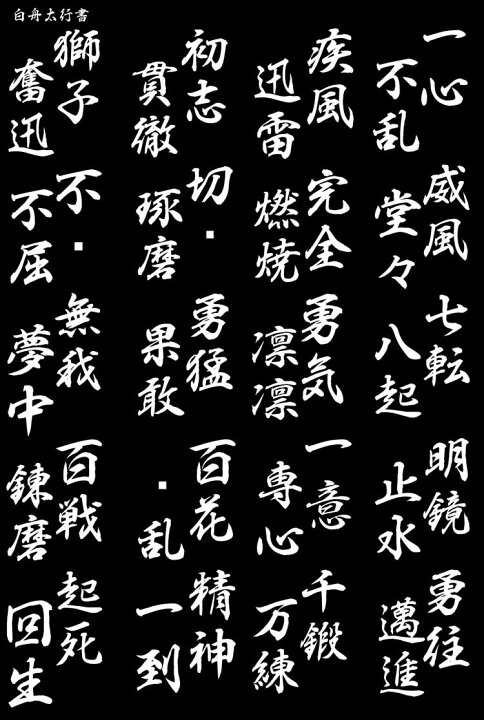 白舟太行書
一心不乱
疾風迅雷
初志貫徹
獅子奮迅
威風堂々
完全燃焼
切▪琢磨
不▪不屈
七転八起
勇気凛凛
勇猛果敢
無我夢中
明鏡止水
一意専心
百花▪乱
百戦錬磨
勇往邁進
千鍛万練
精神一到
起死回生